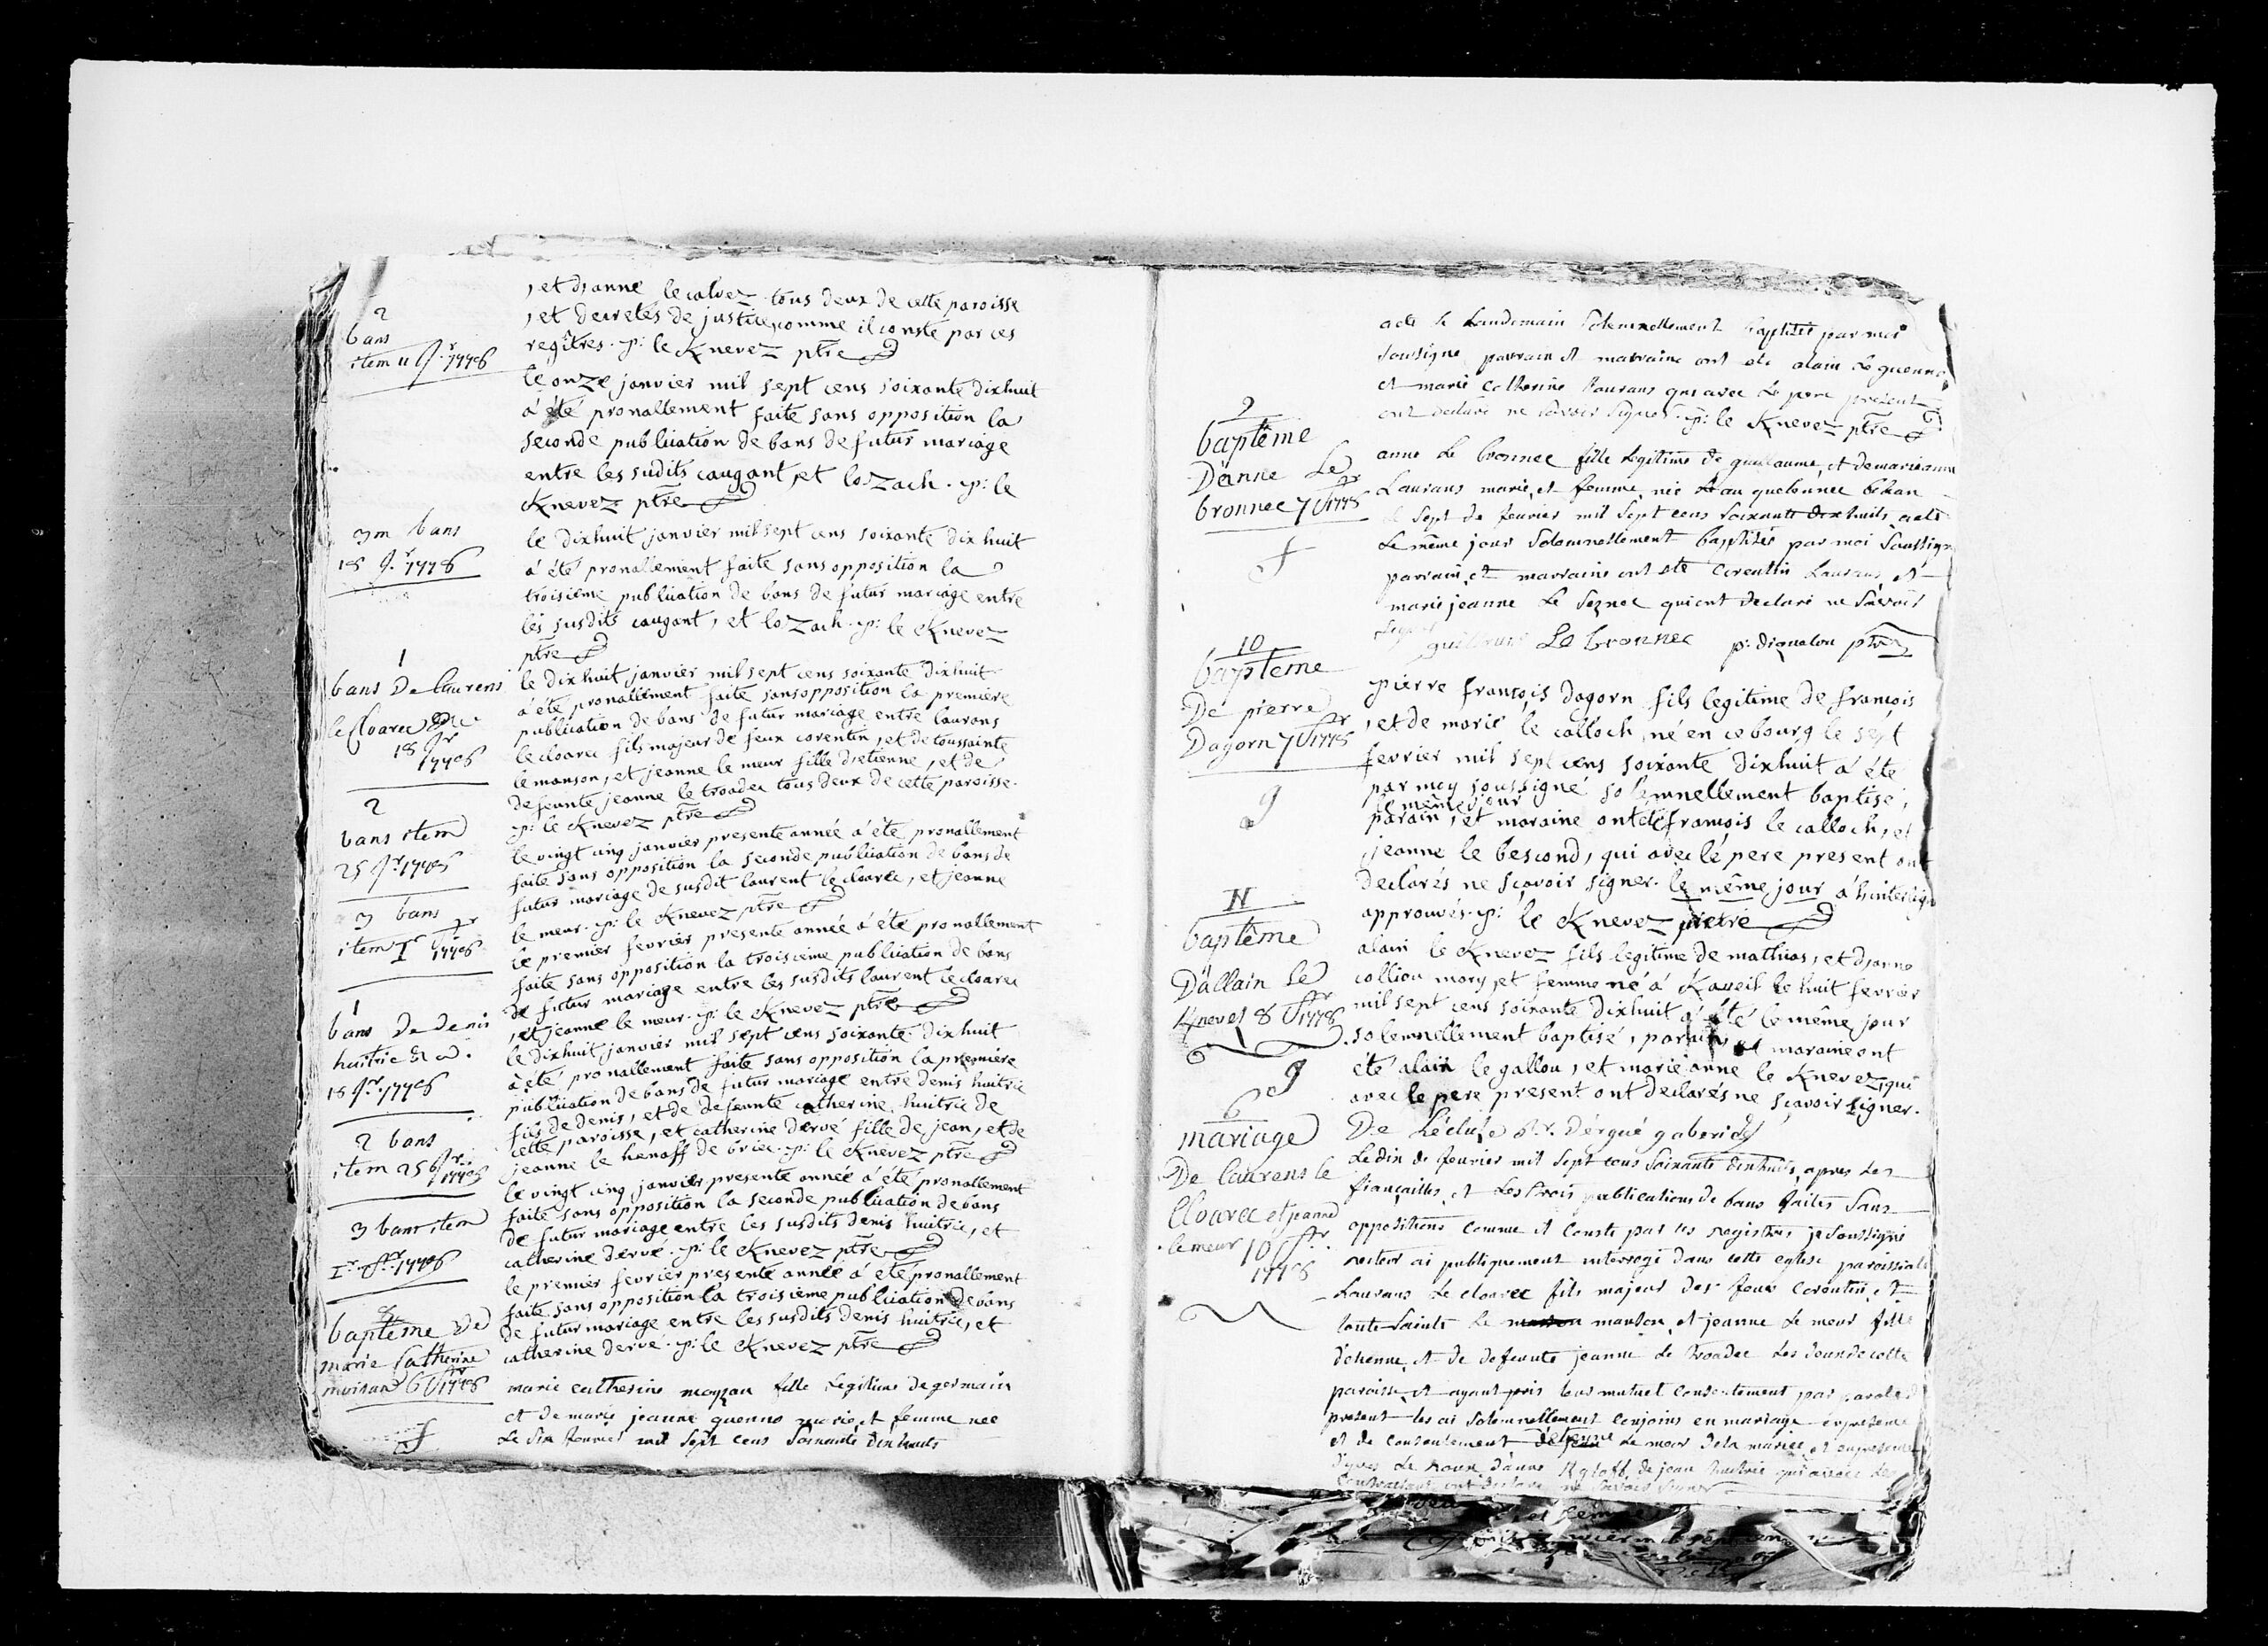 , et d'anne le calvez tous deux de cette paroisse
, et decretés de justice, comme il conste par ces
regîtres. p: le Knevez ptre
2
bans
item 11 jr. 1778
le onze janvier mil sept cens soixante dixhuit
a été pronallement faite sans opposition la
seconde publication de bans de futur mariage
entre les sudits caugant, et loszach. p: le
Knevez ptre
3m bans
18 jr. 1778
le dixhuit janvier mil sept cens soixante dix huit
a été pronallement faite sans opposition la
troisieme publication de bans de futur mariage entre
les susdits caugant, et loszach. p: le Knevez
ptre
1
bans de laurens
le cloarec &c
18 jr
1778
le dixhuit janvier mil sept cens soixante dixhuit
a été pronallement faite sans opposition la premiere
publication de bans de futur mariage entre laurans
le cloarec fils majeur de feux corentin, et de toussainte
le manson, et jeanne le meur fille d'etienne, et de
defeunte jeanne le troadec tous deux de cette paroisse.
p: le Knevez ptre
2
bans item
25 jr. 1778
le vingt cinq janvier presente année a été pronallement
faite sans opposition la seconde publication de bans de
futur mariage de susdit laurent le cloarec, et jeanne
le meur. p: le Knevez ptre
3 bans
item 1r fr 1778
le premier fevrier presente année a été pronallement
faite sans opposition la troisieme publication de bans
de futur mariage entre les susdits laurent le cloarec
, et jeanne le meur. p: le Knevez ptre
1
bans de denis
huitric &c.
18 jr. 1778
le dixhuit janvier mil sept cens soixante dix huit
a été pronallement faite sans opposition la premiere
publication de bans de futur mariage entre denis huitric
fils de denis, et de defeunte catherine huitric de
cette paroisse, et catherine dervé fille de jean, et de
jeanne le henaff de briec. p: le Knevez ptre
2 bans
item 25 jr. 1778
le vingt cinq janvier presente année a été pronallement
faite sans opposition la seconde publication de bans
de futur mariage entre les susdits denis huitric, et
catherine dervé. p: le Knevez ptre
3 bans item
1r. fr. 1778
le premier fevrier presente année a été pronallement
faite sans opposition la troisieme publication de bans
de futur mariage entre les susdits denis huitric, et
catherine dervé. p: le Knevez ptre
8
baptême de
marie Catherine
moisan 6 fr 1778
marie catherine moysan fille legitime de germain
et de marie jeanne quenno marie, et femme nee
le six fevrier mil sept cens soixante dixhuits
aete le landemain solemnellement baptisée par moi
soussigne parrain et marraine ont ete alain le quenno
et marie catherine laurans qui avec le pere present
ont declare ne savoir signer. p: le Knevez ptre
9
baptême
D'anne le
bronnec 7 fr 1778
anne le bronnec fille legitime de guillaume, et de marie anne
Laurans marie, et femme, née au quelennec bihan
le sept de fevrier mil sept cens soixante dixhuits aete
le même jour solemnellement baptisée par moi soussigne
parrain, et marraine ont ete corentin Laurans, et
marie jeanne le seznec qui ont declaré ne savoir
signer
guillaume Le bronnec p: diquelou ptre
10
baptême
De pierre
Dagorn 7 fr 1778
pierre françois dagorn fils legitime de françois
, et de marie le calloch, né en ce bourg le sept
fevrier mil sept cens soixante dixhuit a été
par moy soussigné solemnellement baptisé,
le même jour
parain, et maraine ont été françois le calloch, et
jeanne le bescond, qui avec le pere present ont
declarés ne sçavoir signer. le même jour a l'interligne
approuvés. p: le Knevez pretre
11
baptême
D'allain le
Knevez 8 fr 1778
alain le Knevez fils legitime de mathias, et d'anne
colliou mary, et femme né a Kaveil le huit fevrier
mil sept cens soixante dixhuit a été le même jour
solemnellement baptisé, parain, et maraine ont
été alain le gallou, et marie anne le Knevez, qui
avec le pere present ont declarés ne sçavoir signer.
De Lécluse Rr. d'ergué gaberic
6
mariage
De laurens le
Cloarec et jeanne
le meur 10 fr
1778
Le dix de fevrier mil sept cens soixante dixhuits, apres les
fiançailles, et les trois publications de bans faites sans
oppositions comme il conste par les registres je soussigné
recteur ai publiquement interrogé dans cette eglise paroissiale
Laurans le cloarec fils majeur des feux corentin, et
toute Sainte le manson, et jeanne le meur fille
d'etienne, et de defeunte jeanne le troadec les deux de cette
paroisse, et ayant pris leur mutuel consentement par paroles de
present les ai solemnellement conjoins en mariage en presence
et de consentement d'etienne le meur de la mariée, et en presence
d'yves le roux, d'anne Kgloff, de jean huitric qui avec les
contractans ont declare ne savoir signer